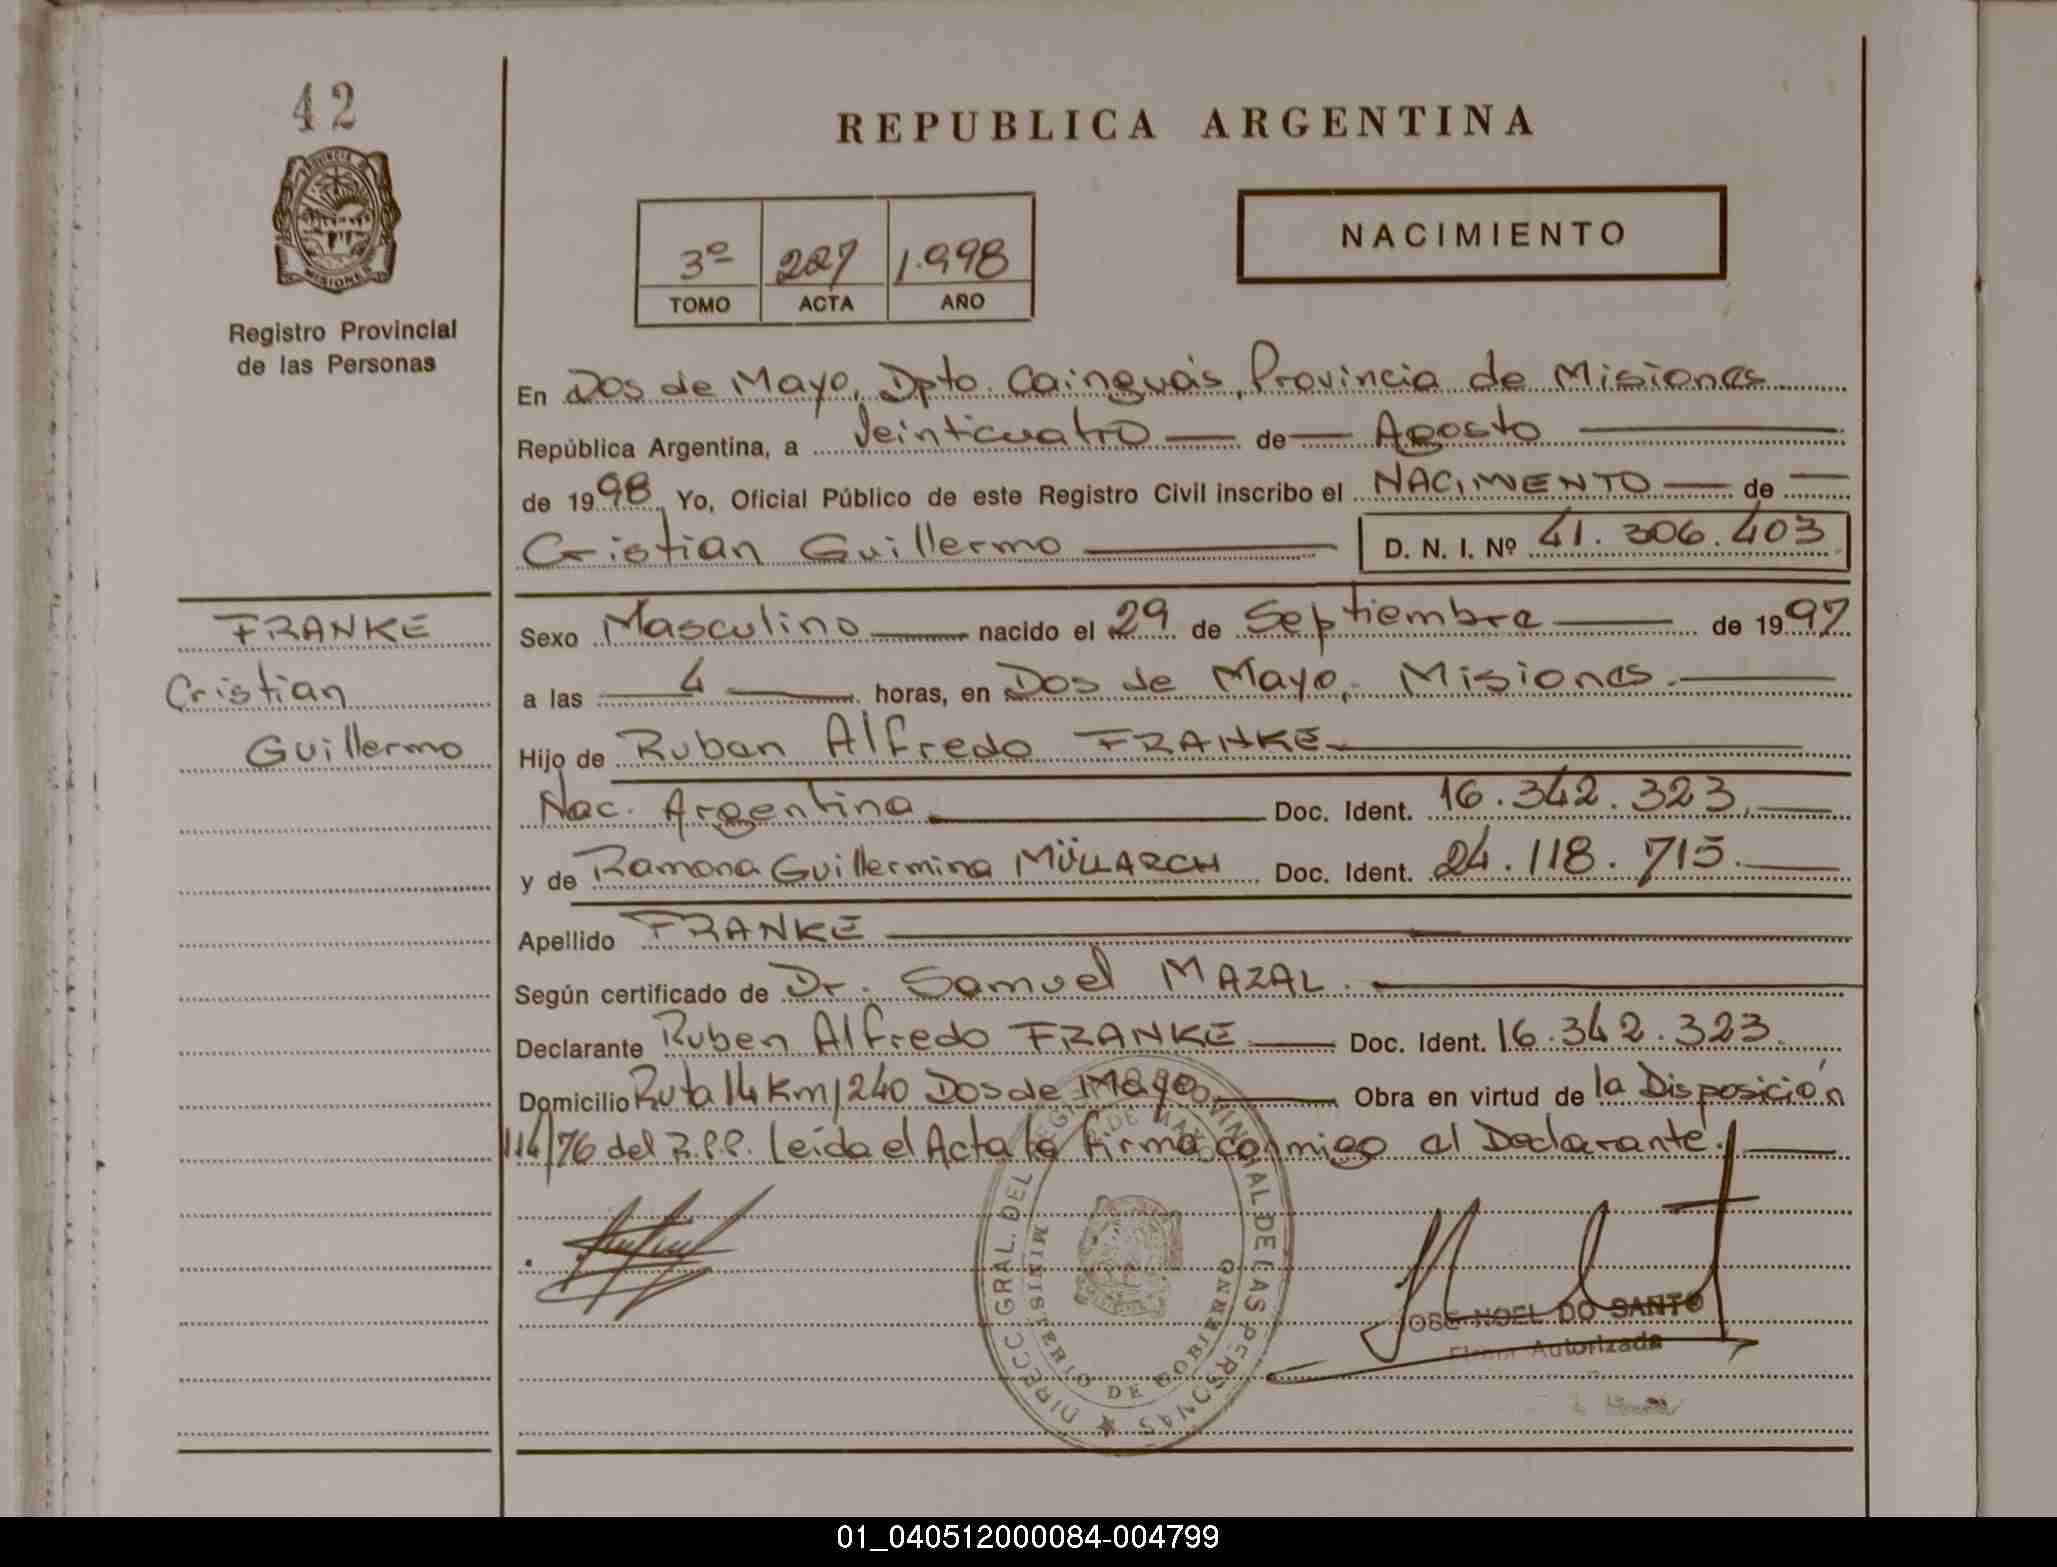 42
REPUBLICA ARGENTINA
PROVINCIA DE MISIONES
Registro Provincial
de las Personas
3º 227 1.998
TOMO ACTA AÑO
NACIMIENTO
En Dos de Mayo, Dpto. Cainguás, Provincia de Misiones
República Argentina, a Veinticuatro de Agosto
de 1998 Yo, Oficial Público de este Registro Civil inscribo el NACIMIENTO de
Cristian Guillermo D. N. I. Nº 41.306.403
FRANKE
Cristian
Guillermo
Sexo Masculino nacido el 29 de Septiembre de 1997
a las 4 horas, en Dos de Mayo, Misiones.
Hijo de Ruben Alfredo FRANKE
Nac. Argentina Doc. Ident. 16.342.323.
y de Ramona Guillermina MÜLLARCH Doc. Ident. 24.118.715.
Apellido FRANKE
Según certificado de Dr. Samuel MAZAL.
Declarante Ruben Alfredo FRANKE Doc. Ident. 16.342.323.
Domicilio Ruta 14 Km/240 Dos de Mayo Obra en virtud de la Disposición
114/76 del R.P.P. Leida el Acta la firma conmigo el Declarante.
DIRECC. GRAL. DEL REGISTRO PROVINCIAL DE LAS PERSONAS
MINISTERIO DE GOBIERNO
DOS DE MAYO
JOSE NOEL DO SANTO
Firma Autorizada
01_040512000084-004799